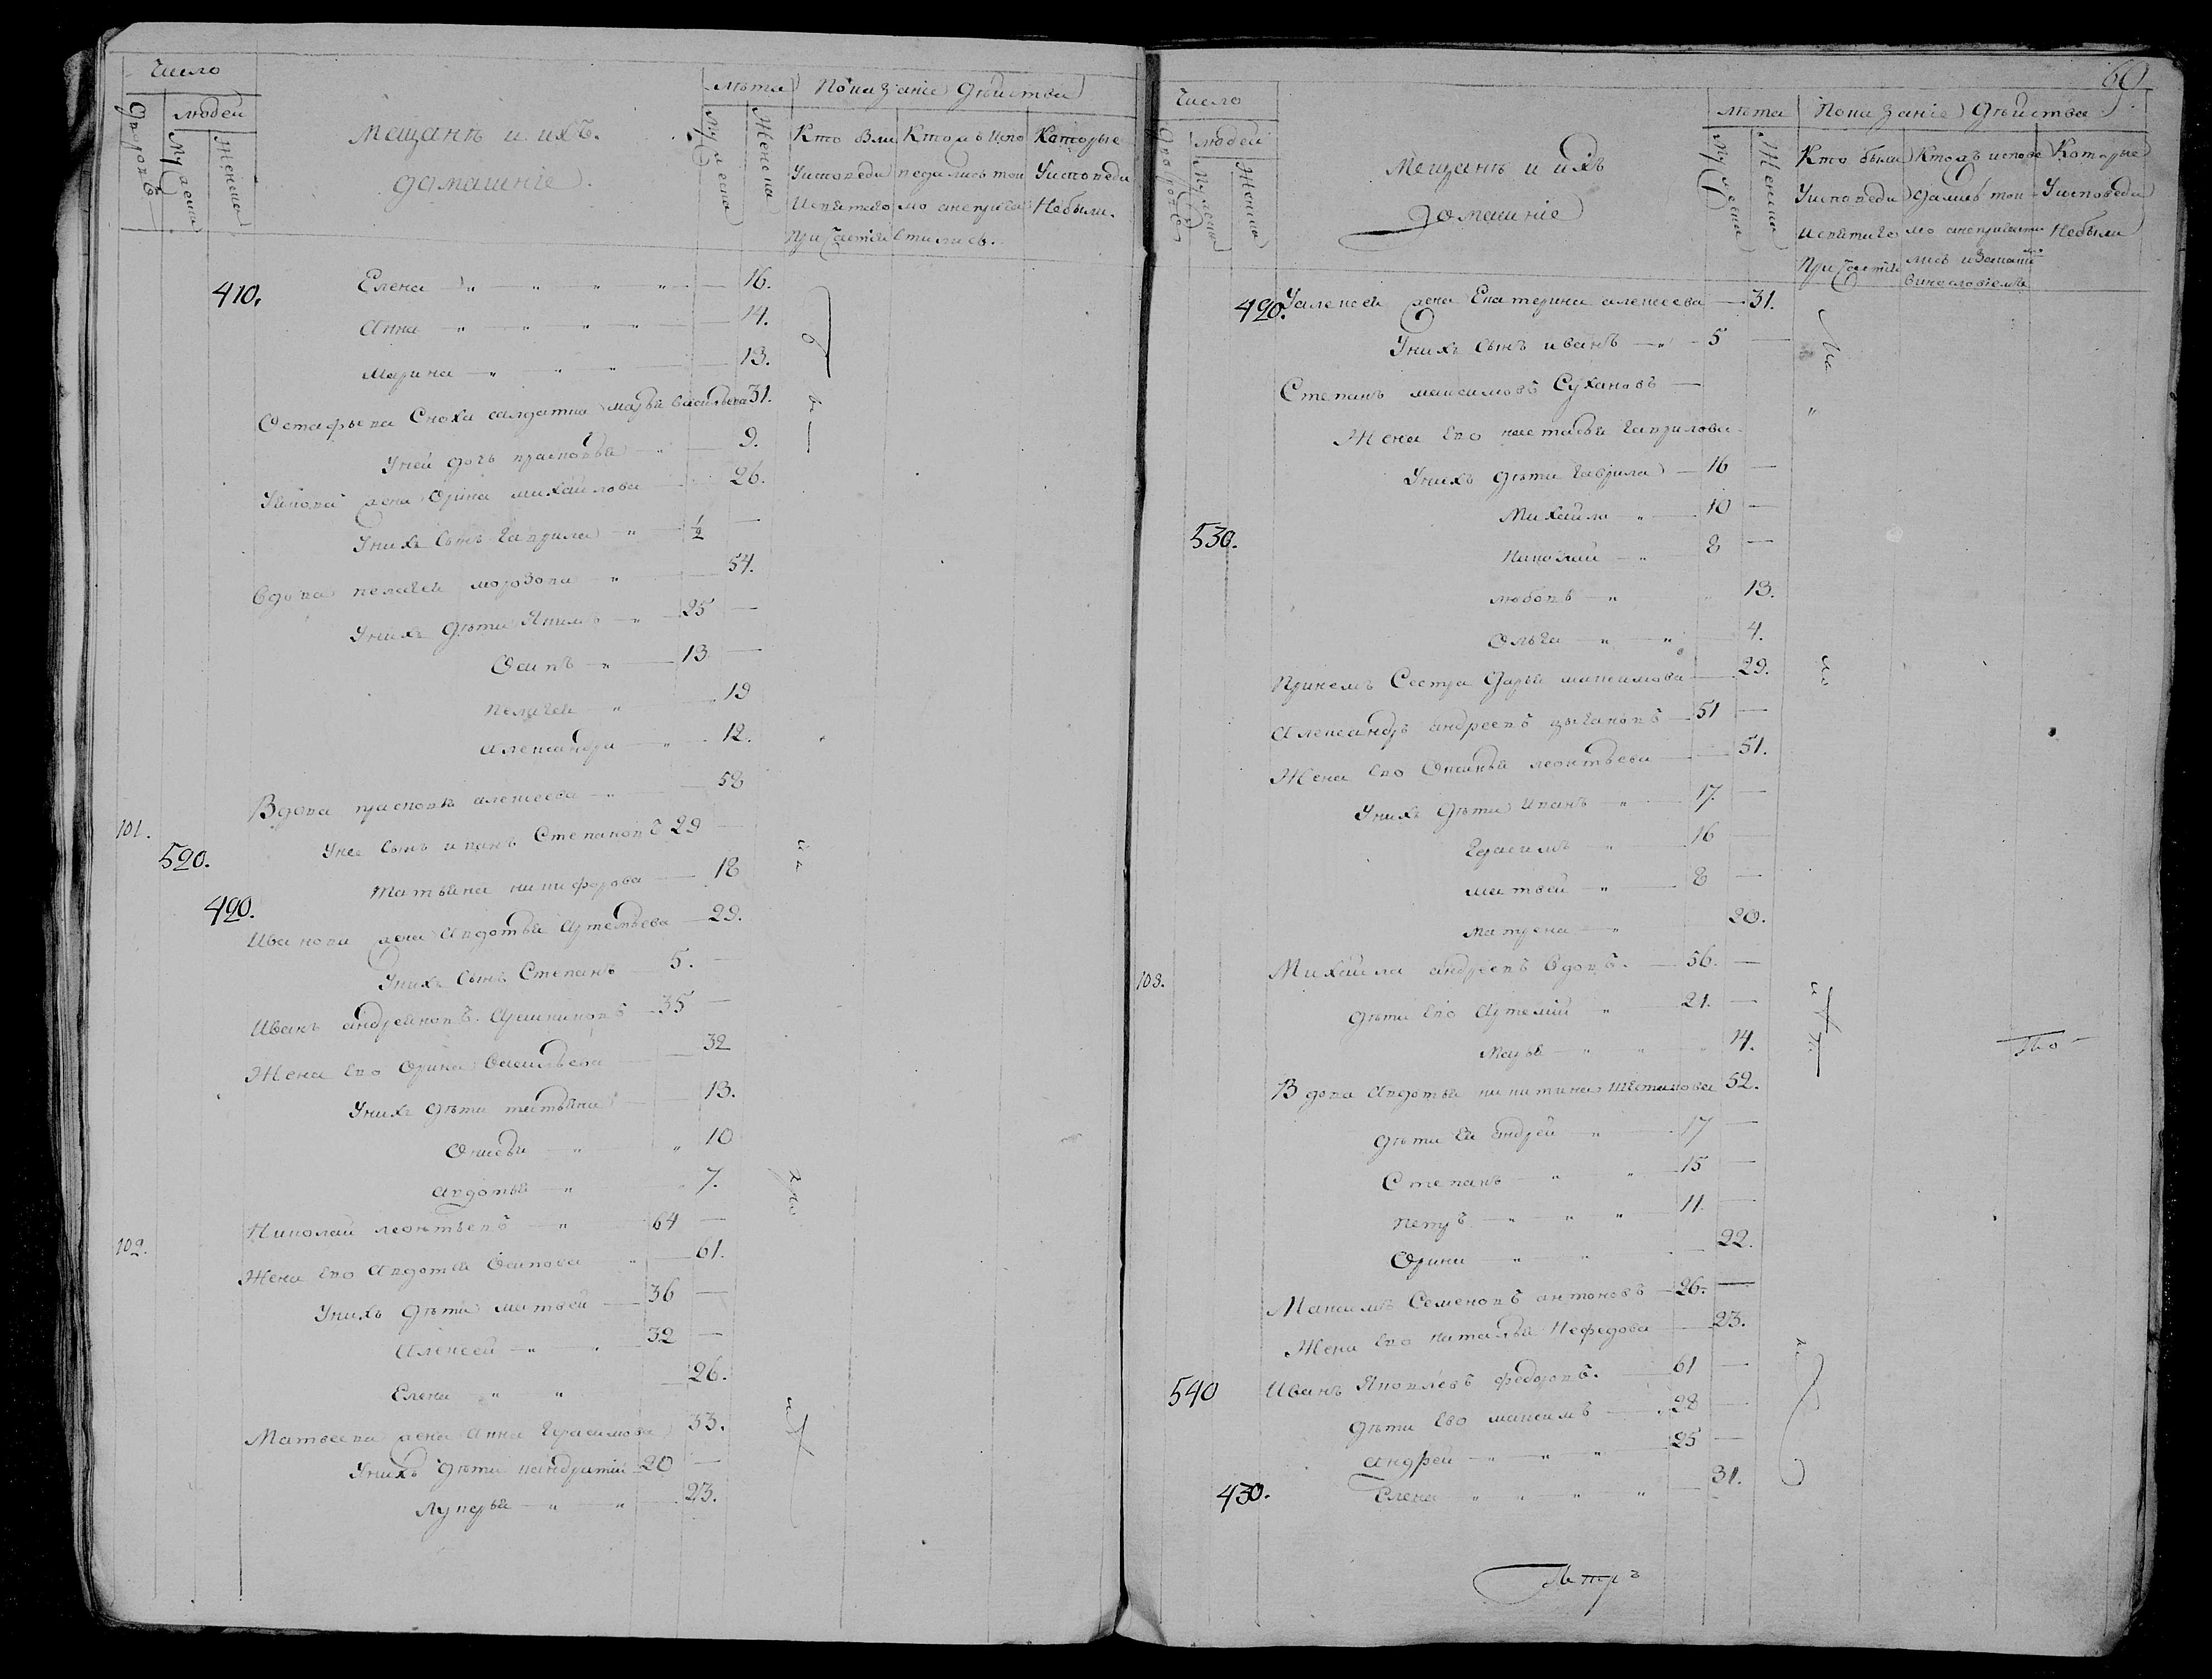 Число
людей
Дворовъ
Мужеска
Женска
Мещанъ и ихъ.
домашніе.
лѣта
Мужеска
Женска
Показаніе дѣйства
Кто были
У исповеди
и святаго
причастія
Кто исповедались токмо а не причастились.
Которые
У исповеди
Не были.
410. Елена 16.
Анна 14.
Марина 13.
Остафьева Сноха салдатка марья васильева 31.
У ней дочь прасковья 9.
жена Орина михайлова 26.
У нихъ сынъ Гаврила ½
вдова пелагея морозова 54.
У нихъ дѣти Якимъ 25
Осипъ 13
пелагея 19
александра 12.
Вдова прасковья алексеева 58
101. У нее сынъ иванъ Степановъ 29
520. Татьяна никифорова 18
420. Иванова жена Авдотья Артемьева 29.
У нихъ сынъ Степанъ 5.
Иванъ андреяновъ 35
Жена ево Орина васильева 32
У нихъ дѣти татьяна 13.
10
авдотья 7.
102. Николай леонтьевъ 64
Жена ево Авдотья Осипова 61.
У нихъ дѣти матвей 36
Алексей 32
Елена 26.
Матвеева жена Анна Герасимова 33.
У нихъ дѣти кандратий 20
Лукерья 23.
60
Число
людей
Дворовъ
Мужеска
Женска
Мещанъ и ихъ
домашніе
лѣта
Мужеска
Женска
Показаніе дѣйства
Кто были
У исповеди
и святаго
причастія
Которые
У исповеди
Не были
420. У алексея жена Екатерина алексеева 31.
У нихъ сынъ иванъ 5
Степанъ максимовъ Сухановъ
Жена ево настасья гаврилова
У нихъ дѣти Гаврила 16
Михайла 10
530. Николай 8
любовь 13.
Ольга 4.
При немъ Сестра Дарья максимова 29.
Александръ андреевъ цыгановъ 51
Жена ево Оксинья леонтьева 51.
У нихъ дѣти Иванъ 17.
Герасимъ 16
матвей 8
матрена 20.
103. Михайла андреевъ вдовъ. 56.
дѣти ево Артемій 21.
Марья 14.
Вдова Авдотья никитина 52.
дѣти ей андрей 17
Степанъ 15
петръ 11
Орина 22.
Максимъ Семеновъ антоновъ 26.
Жена ево наталья Нефедова 23.
540 Иванъ Яковлевъ федоровъ. 61
дѣти ево максимъ 28
андрей 25
430. Елена 31.